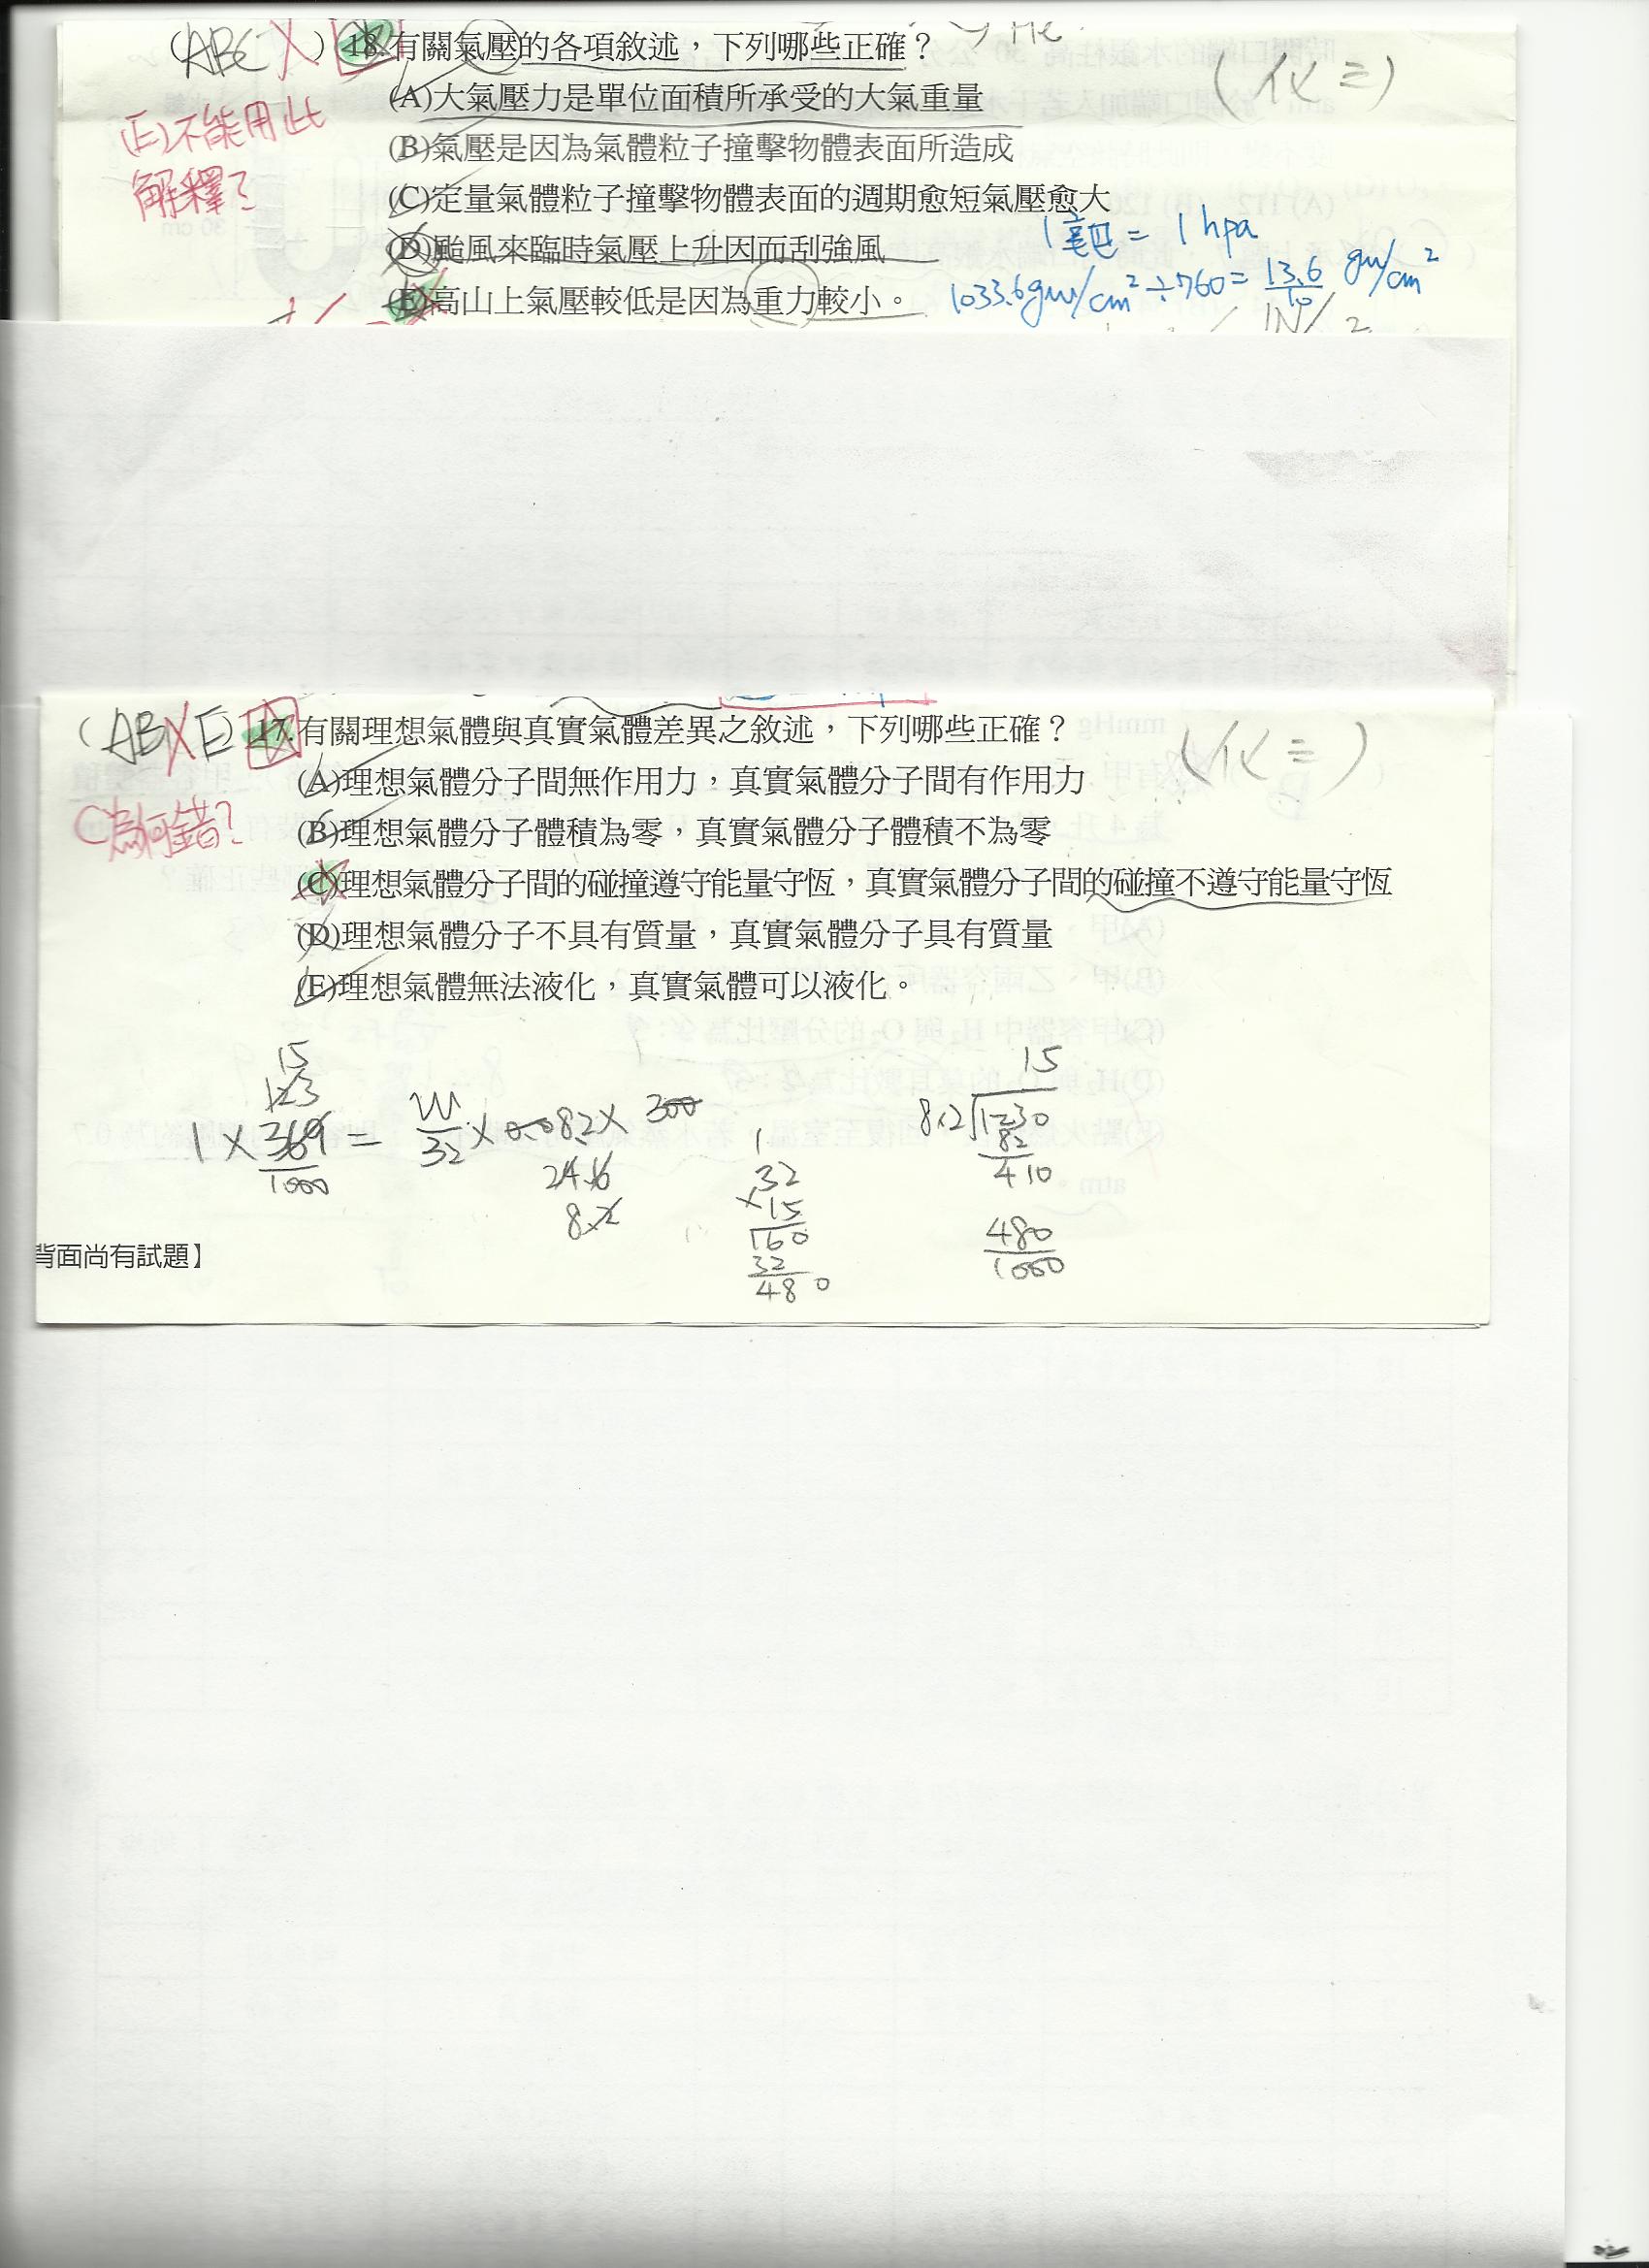 (ABE X) 18.有關氣壓的各項敘述，下列哪些正確？
(A)大氣壓力是單位面積所承受的大氣重量
(化三)
(E)不能用此
解釋？
(B)氣壓是因為氣體粒子撞擊物體表面所造成
(C)定量氣體粒子撞擊物體表面的週期愈短氣壓愈大
(D)颱風來臨時氣壓上升因而刮強風
1毫巴 = 1 hpa
(E)高山上氣壓較低是因為重力較小。
1033.6gw/cm² ÷ 760 = 13.6/10 gw/cm²
(AB X E) 17.有關理想氣體與真實氣體差異之敘述，下列哪些正確？
(化三)
(A)理想氣體分子間無作用力，真實氣體分子間有作用力
C為何錯？
(B)理想氣體分子體積為零，真實氣體分子體積不為零
(C)理想氣體分子間的碰撞遵守能量守恆，真實氣體分子間的碰撞不遵守能量守恆
(D)理想氣體分子不具有質量，真實氣體分子具有質量
(E)理想氣體無法液化，真實氣體可以液化。
15
123
1 × 369/1000 = W/32 × 0.082 × 300
24.6
8.2
1
32
×15
160
32
480
15
8.2 1230
82
410
480
1000
背面尚有試題】